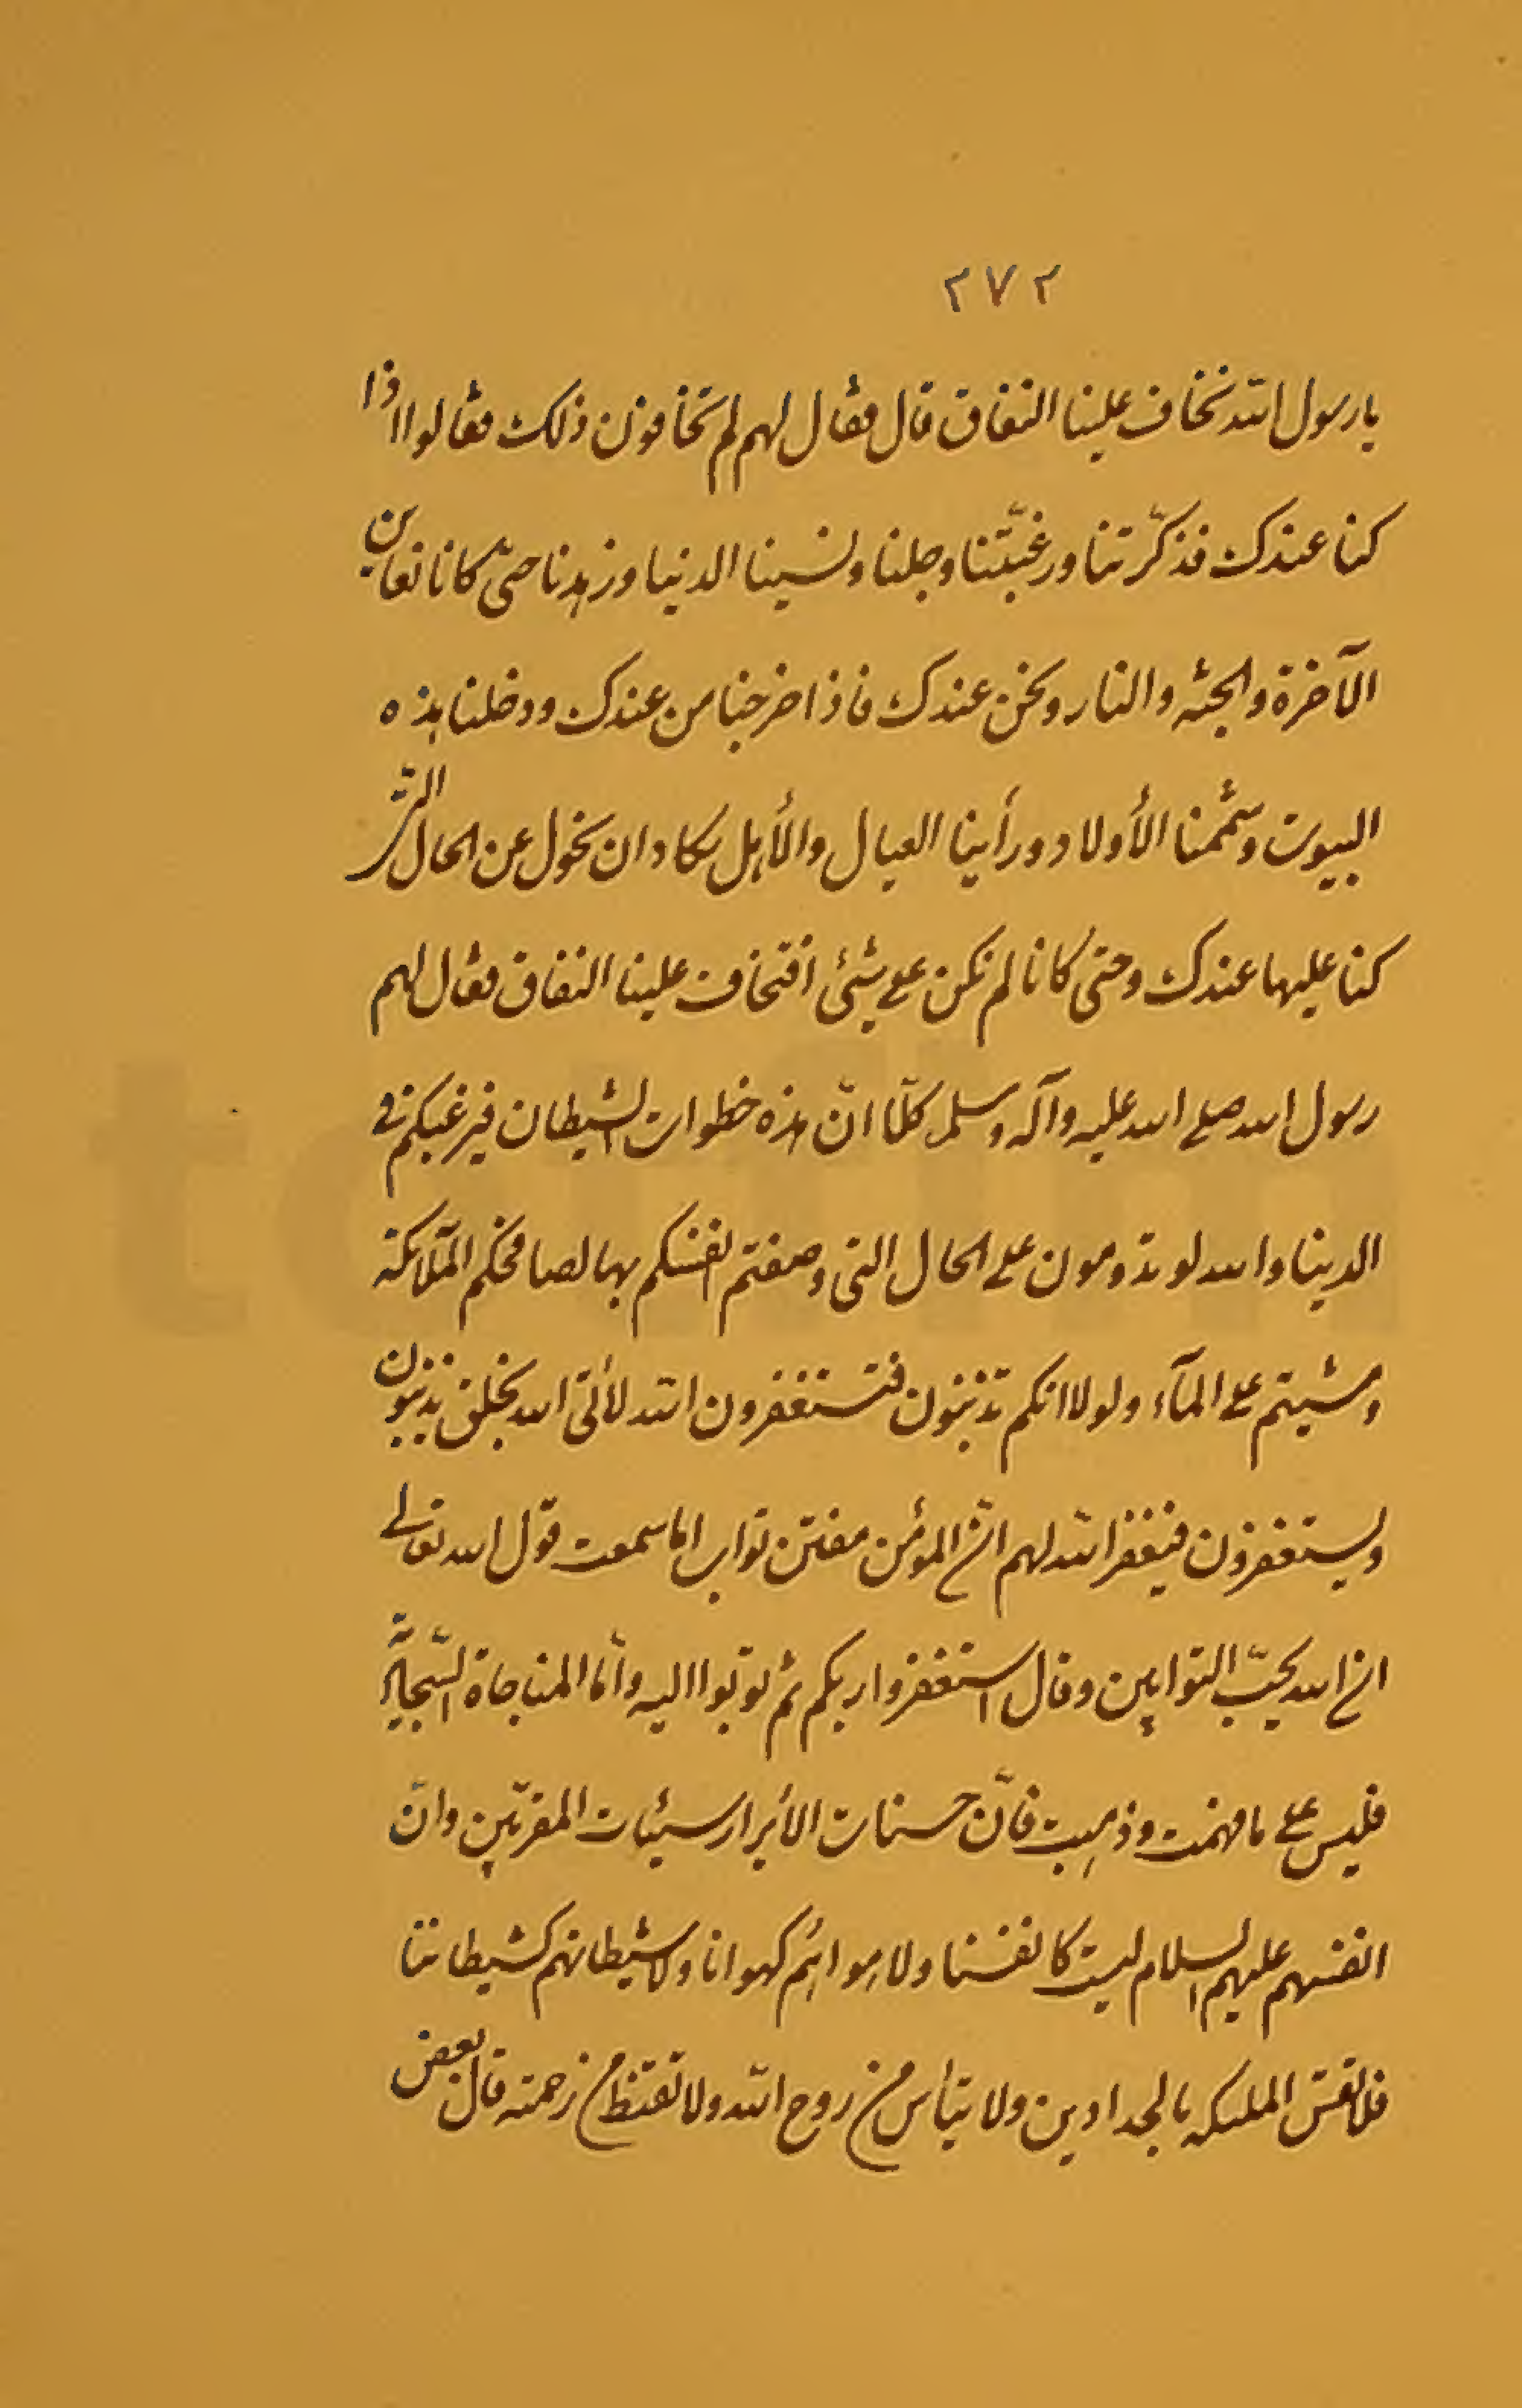 ٢٧٢
يا رسول الله نخاف علينا النفاق قال فقال لهم لم تخافون ذلك فقالوا اذا
كنا عندك فذكّرتنا ورغبّتنا وجلنا ونسينا الدنيا وزهدنا حتىّ كانا نعاين
الآخرة والجنّه والنار ونحن عندك فاذا خرجنا من عندك ودخلنا هذه
البيوت وشممنا الأولاد ورأينا العيال والأهل يكاد ان نحول عن الحال التى
كنا عليها عندك وحتى كانا لم نكن على شئ افتخاف علينا النفاق فقال لهم
رسول الله صلى الله عليه وآله وسلم كلّا انّ هذه خطوات الشيطان فيرغبكم فى
الدينا والله لو تدومون على الحال التى وصفتم انفسكم بها لصافحكم الملآئكة
ومشيتم على المآء ولولا انكم تذنبون فتستغفرون الله لأتى الله بخلق يذنبون
ويستغفرون فيغفر الله لهم انّ المؤمن مفتن تواب اما سمعت قول الله تعالى
ان الله يحبّ التوابين وقال استغفروا ربكم ثم توبوا اليه وأما المناجاة السّجاديّة
فليس على ما فهمت وذهبت فانّ حسنات الأبرار سيئات المقربّين وانّ
انفسهم عليهم السلام ليست كانفسنا ولا هوائهم كهوانا ولا شيطانهم كشيطاننا
فلا تقس الملئكه بالحدادين ولا تيأس من روح الله ولا تقنط من رحمته قال بعض
tofim